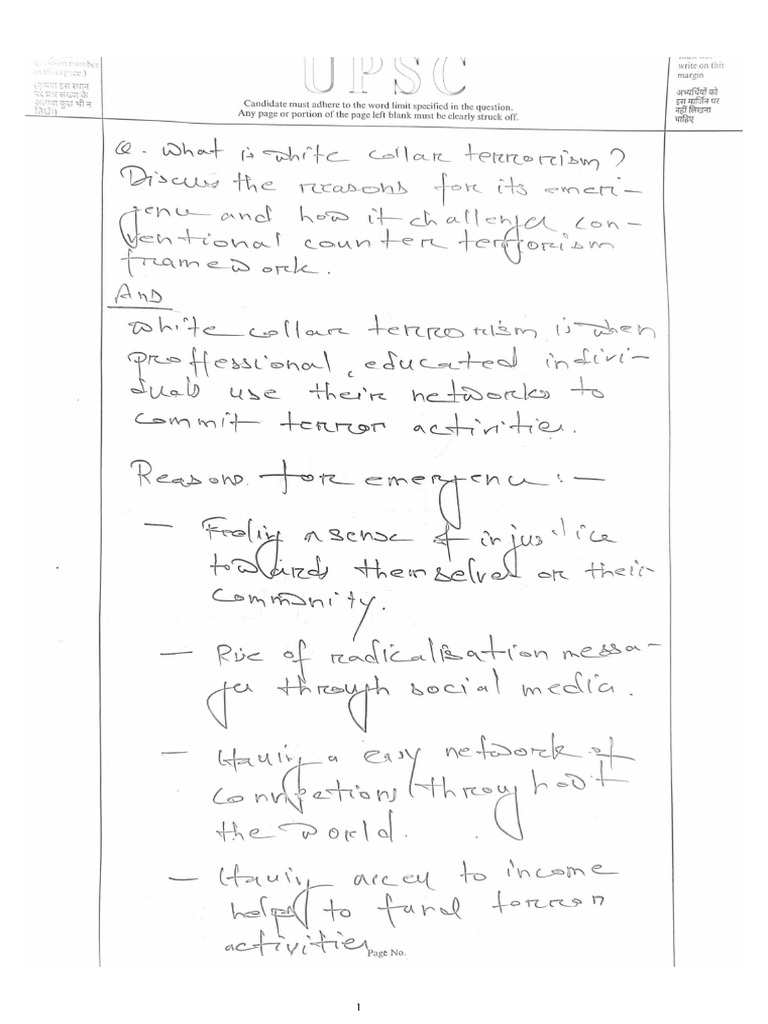 UPSC
Candidate must adhere to the word limit specified in the question.
Any page or portion of the page left blank must be clearly struck off.
write on this
margin
अभ्यर्थियों को
इस मार्जिन पर
नहीं लिखना
चाहिए
Q. What is white collar terrorism?
Discuss the reasons for its emer-
gence and how it challenges con-
ventional counter terrorism
framework.
Ans
White collar terrorism is when
proffessional, educated indivi-
duals use their networks to
commit terror activities.
Reasons for emergence :-
- Feeling a sense of injustice
towards themselves or their
community.
- Rise of radicalisation messa-
ges through social media.
- Having a easy network of
connections throughout
the world.
- Having access to income
helps to fund terror
activities
Page No.
1